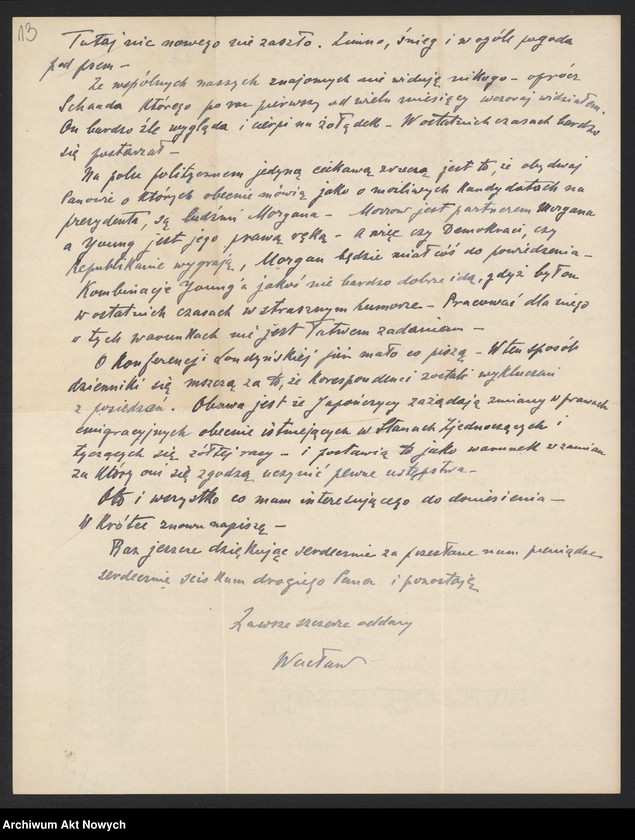 13
Tutaj nic nowego nie zaszło. Zimno, śnieg i w ogóle pogoda
pod psem –
Ze wspólnych naszych znajomych nie widuję nikogo – oprócz
Schaada którego po raz pierwszy od wielu miesięcy wczoraj widziałem.
On bardzo źle wygląda i cierpi na żołądek – W ostatnich czasach bardzo
się postarzał –
Na polu politycznem jedyną ciekawą rzeczą jest to, że obydwaj
Panowie o których obecnie mówią jako o możliwych kandydatach na
prezydenta, są ludźmi Morgana – Morrow jest partnerem Morgana
a Young jest jego prawą ręką – A więc czy Demokraci, czy
Republikanie wygrają, Morgan będzie miał coś do powiedzenia –
Kombinacje Young'a jakoś nie bardzo dobrze idą, gdyż był on
w ostatnich czasach w strasznym humorze – Pracować dla niego
w tych warunkach nie jest łatwem zadaniem –
O Konferencji Londyńskiej już mało co piszą – W ten sposób
dzienniki się mszczą za to, że korespondenci zostali wykluczeni
z posiedzeń. Obawa jest że Japończycy zażądają zmiany w prawach
emigracyjnych obecnie istniejących w Stanach Zjednoczonych i
tyczących się żółtej rasy – i postawią to jako warunek w zamian
za który oni się zgodzą uczynić pewne ustępstwa –
Oto i wszystko co mam interesującego do doniesienia –
W krótce znowu napiszę –
Raz jeszcze dziękując serdecznie za przesłane nam pieniądze
serdecznie ściskam drogiego Pana i pozostaję
Zawsze szczerze oddany
Wacław
Archiwum Akt Nowych